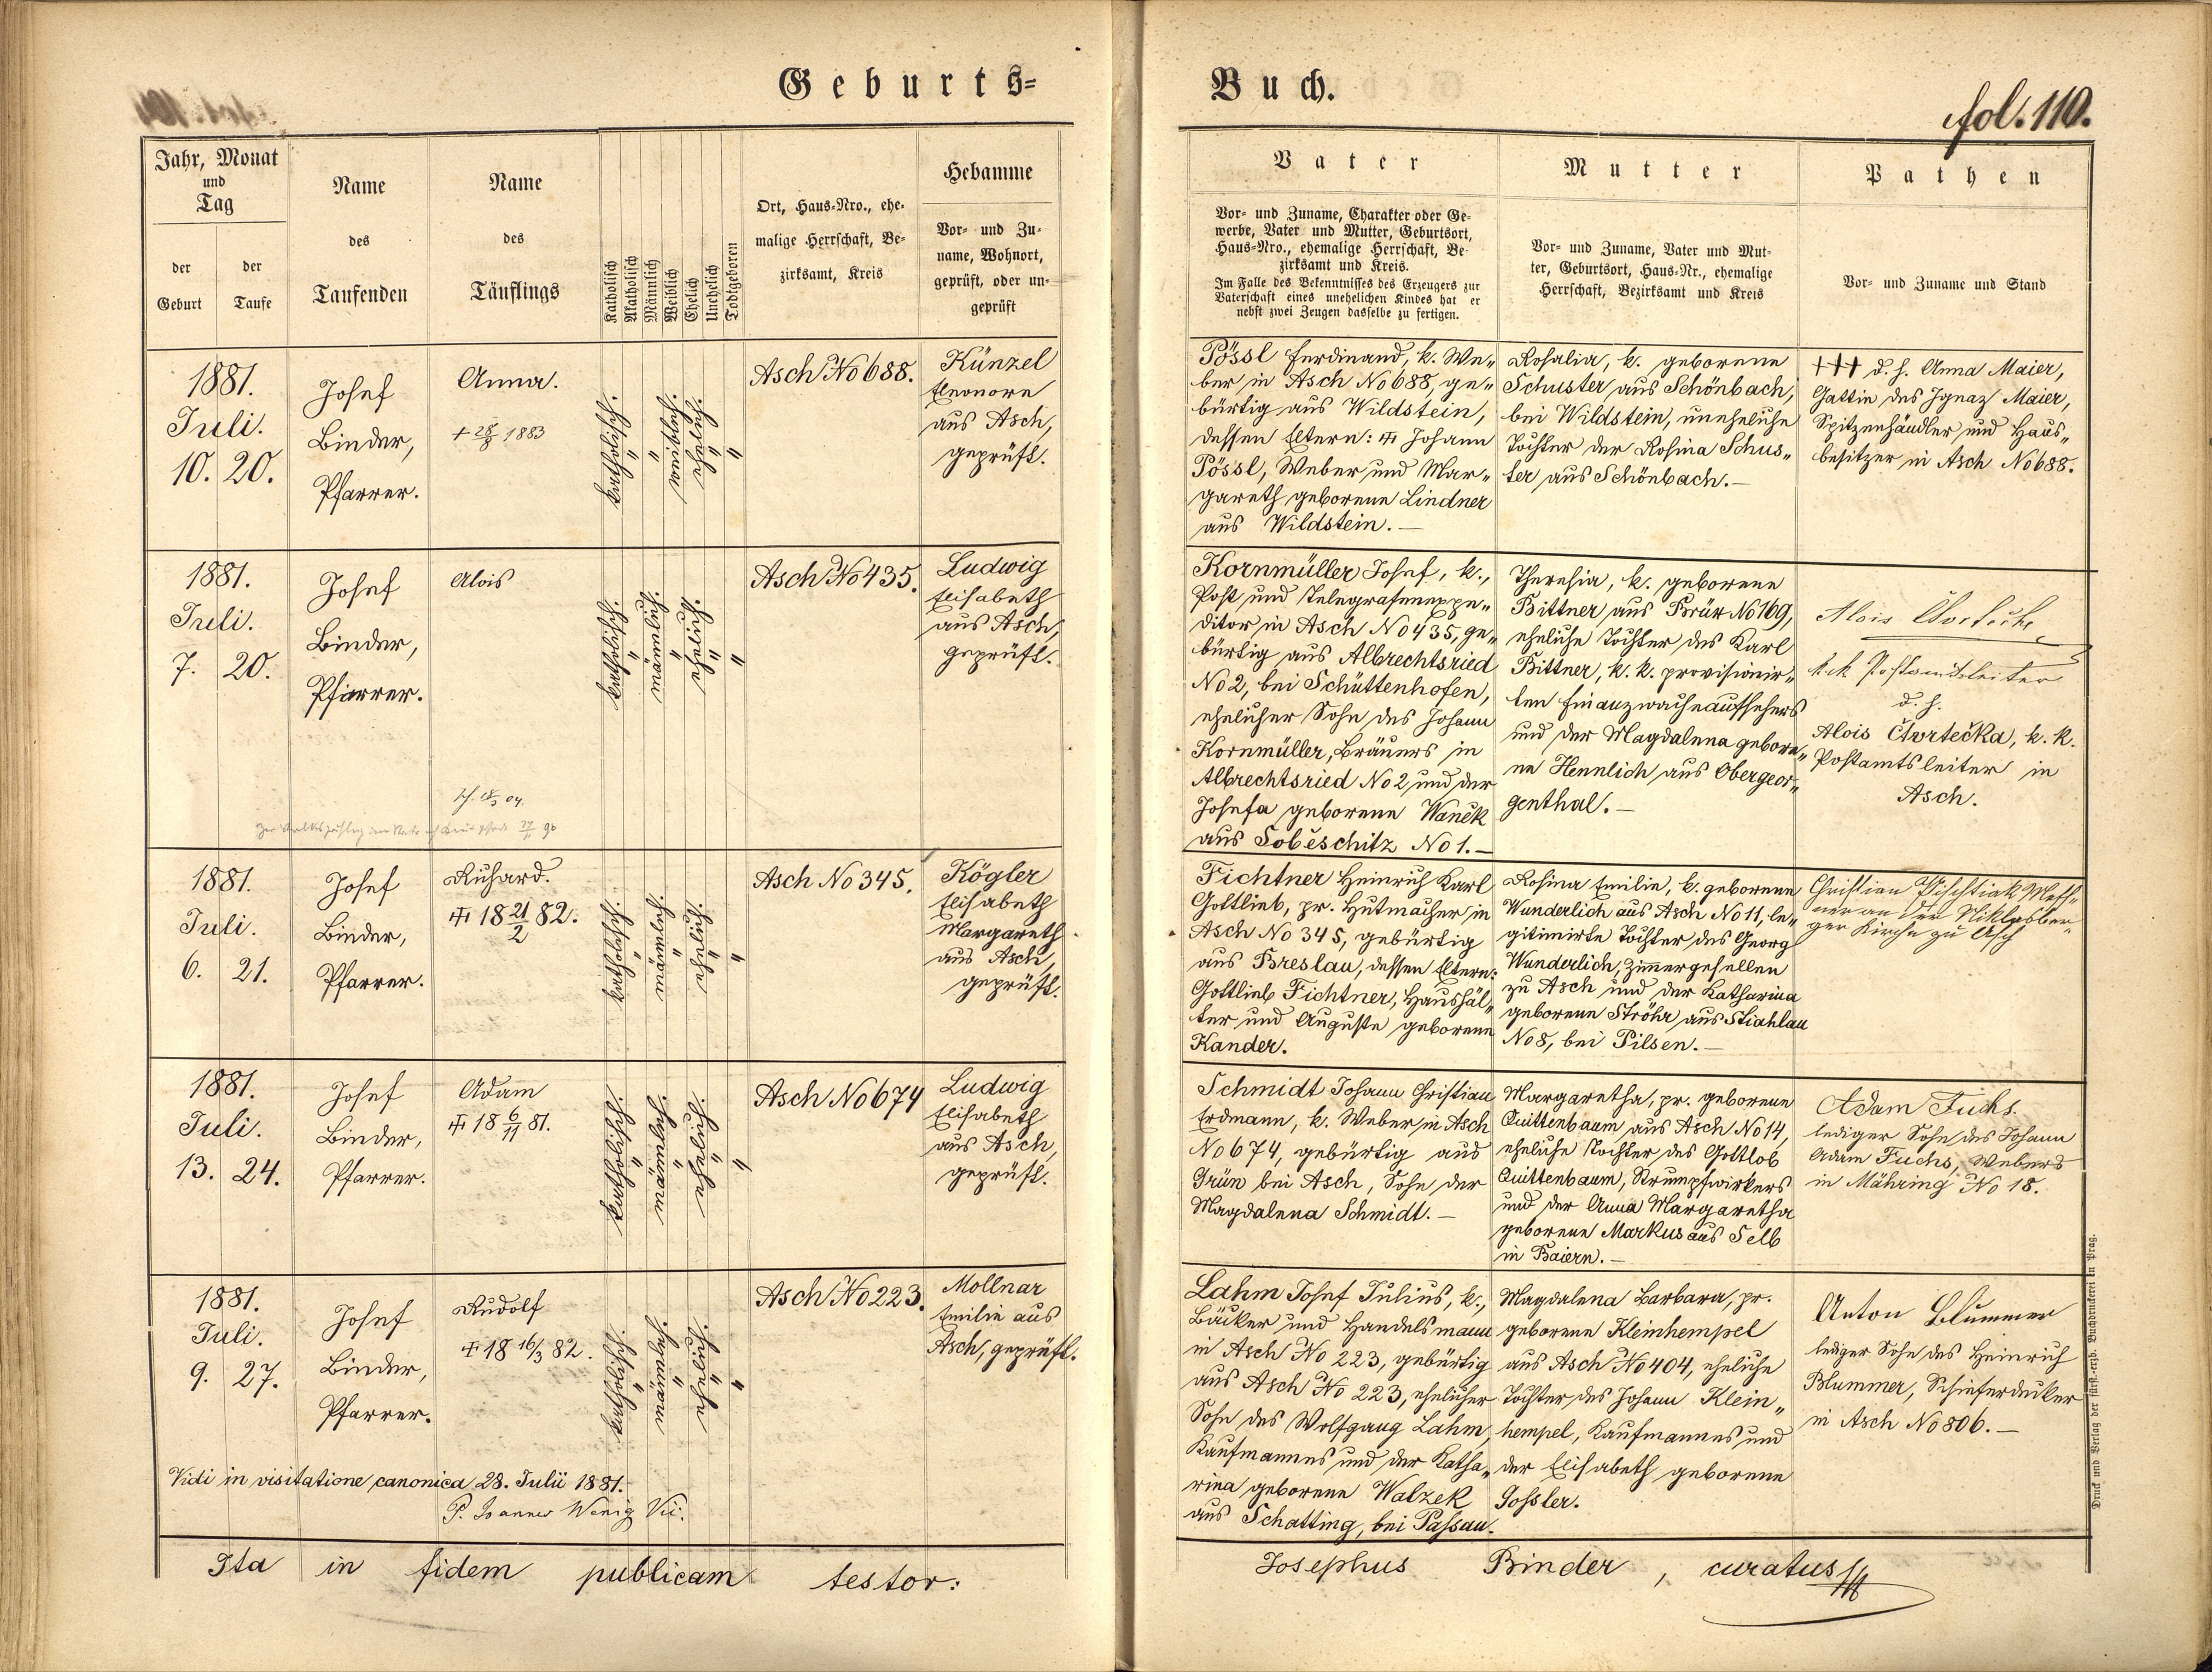 Geburts=
Buch.
fol. 110.
Jahr, Monat
und
Tag
der
Geburt
der
Taufe
Name
des
Taufenden
Name
des
Täuflings
Katholisch
Akatholisch
Männlich
Weiblich
Ehelich
Unehelich
Todtgeboren
Ort, Haus-Nro., ehe-
malige Herrschaft, Be-
zirksamt, Kreis
Hebamme
Vor- und Zu-
name, Wohnort,
geprüft, oder un-
geprüft
Vater
Vor- und Zuname, Charakter oder Ge-
werbe, Vater und Mutter, Geburtsort,
Haus-Nro., ehemalige Herrschaft, Be-
zirksamt und Kreis.
Im Falle des Bekenntnisses des Erzeugers zur
Vaterschaft eines unehelichen Kindes hat er
nebst zwei Zeugen dasselbe zu fertigen.
Mutter
Vor- und Zuname, Vater und Mut-
ter, Geburtsort, Haus-Nr., ehemalige
Herrschaft, Bezirksamt und Kreis
Pathen
Vor- und Zuname und Stand
1881.
Juli.
10. 20.
Josef
Binder,
Pfarrer.
Anna.
+ 28/8 1883
katholisch.
"
"
weiblich.
ehelich.
"
"
Asch No 688.
Künzel
Eleonore
aus Asch,
geprüft.
Pössl Ferdinand, k. We„
ber in Asch No 688, ge„
bürtig aus Wildstein,
dessen Eltern: ✠ Johann
Pössl, Weber und Mar„
gareth geborene Lindner
aus Wildstein. —
Rosalia, k. geborene
Schuster aus Schönbach,
bei Wildstein, uneheliche
Tochter der Rosina Schus„
ter aus Schönbach. —
+++ d. h. Anna Maier,
Gattin des Ignaz Maier,
Spitzenhändler und Haus„
besitzer in Asch No 688.
1881.
Juli.
7. 20.
Josef
Binder,
Pfarrer.
Alois
katholisch.
"
männlich.
"
ehelich.
"
"
Asch No 435.
Ludwig
Elisabeth
aus Asch,
geprüft.
Kornmüller Josef, k.,
Post und Telegrafenexpe„
ditor in Asch No 435, ge„
bürtig aus Albrechtsried
No 2, bei Schüttenhofen,
ehelicher Sohn des Johann
Kornmüller, Bräuers in
Albrechtsried No 2 und der
Josefa geborene Wanek
aus Soběschitz No 1. —
Theresia, k. geborene
Bittner aus Brüx No 169,
eheliche Tochter des Karl
Bittner, k. k. provisionir„
ten Finanzwacheaufsehers
und der Magdalena gebore„
ne Hennlich aus Obergeor„
genthal. —
Alois Čtvrtečka
k. k. Postamtsleiter
d. h.
Alois Čtvrtečka, k. k.
Postamtsleiter in
Asch.
1881.
Juli.
6. 21.
Josef
Binder,
Pfarrer.
Richard.
✠ 18 21/2 82.
katholisch.
"
männlich.
"
ehelich.
"
"
Asch No 345.
Kögler
Elisabeth
Margareth
aus Asch,
geprüft.
Fichtner Heinrich Karl
Gottlieb, pr. Hutmacher in
Asch No 345, gebürtig
aus Breslau, dessen Eltern:
Gottlieb Fichtner, Haushäl„
ter und Auguste geborene
Kander.
Rosina Emilie, k. geborene
Wunderlich aus Asch No 11, le„
gitimirte Tochter des Georg
Wunderlich, Zimmergesellen
zu Asch und der Katharina
geborene Ströhr aus Stiahlau
No 8, bei Pilsen. —
Christian Meß„
ner an der Niklasber„
ger Kirche zu Asch
1881.
Juli.
13. 24.
Josef
Binder,
Pfarrer.
Adam
✠ 18 6/11 81.
katholisch.
"
männlich.
"
ehelich.
"
"
Asch No 674
Ludwig
Elisabeth
aus Asch,
geprüft.
Schmidt Johann Christian
Erdmann, k. Weber in Asch
No 674, gebürtig aus
Grün bei Asch, Sohn der
Magdalena Schmidt. —
Margaretha, pr. geborene
Quittenbaum aus Asch No 14,
eheliche Tochter des Gottlob
Quittenbaum, Strumpfwirkers
und der Anna Margaretha
geborene Markus aus Selb
in Baiern. —
Adam Fuchs.
lediger Sohn des Johann
Adam Fuchs, Webers
in Mähring No 18.
1881.
Juli.
9. 27.
Josef
Binder,
Pfarrer.
Rudolf
✠ 18 16/3 82.
katholisch.
"
männlich.
"
ehelich.
"
"
Asch No 223.
Mollnar
Emilie aus
Asch, geprüft.
Lahm Josef Julius, k.,
Bäcker und Handelsmann
in Asch No 223, gebürtig
aus Asch No 223, ehelicher
Sohn des Wolfgang Lahm,
Kaufmannes und der Katha„
rina geborene Walzek
aus Schatting, bei Passau.
Magdalena Barbara, pr.
geborene Kleinhempel
aus Asch No 404, eheliche
Tochter des Johann Klein„
hempel, Kaufmannes und
der Elisabeth geborene
Gossler.
Anton Blummer
lediger Sohn des Heinrich
Blummer, Schieferdecker
in Asch No 806. —
Vidi in visitatione canonica 28. Julii 1881.
P. Joannes Wenig Vic.
Ita in fidem publicam testor:
Josephus Binder, curatus
Druck und Verlag der fürst-erzb. Buchdruckerei in Prag.